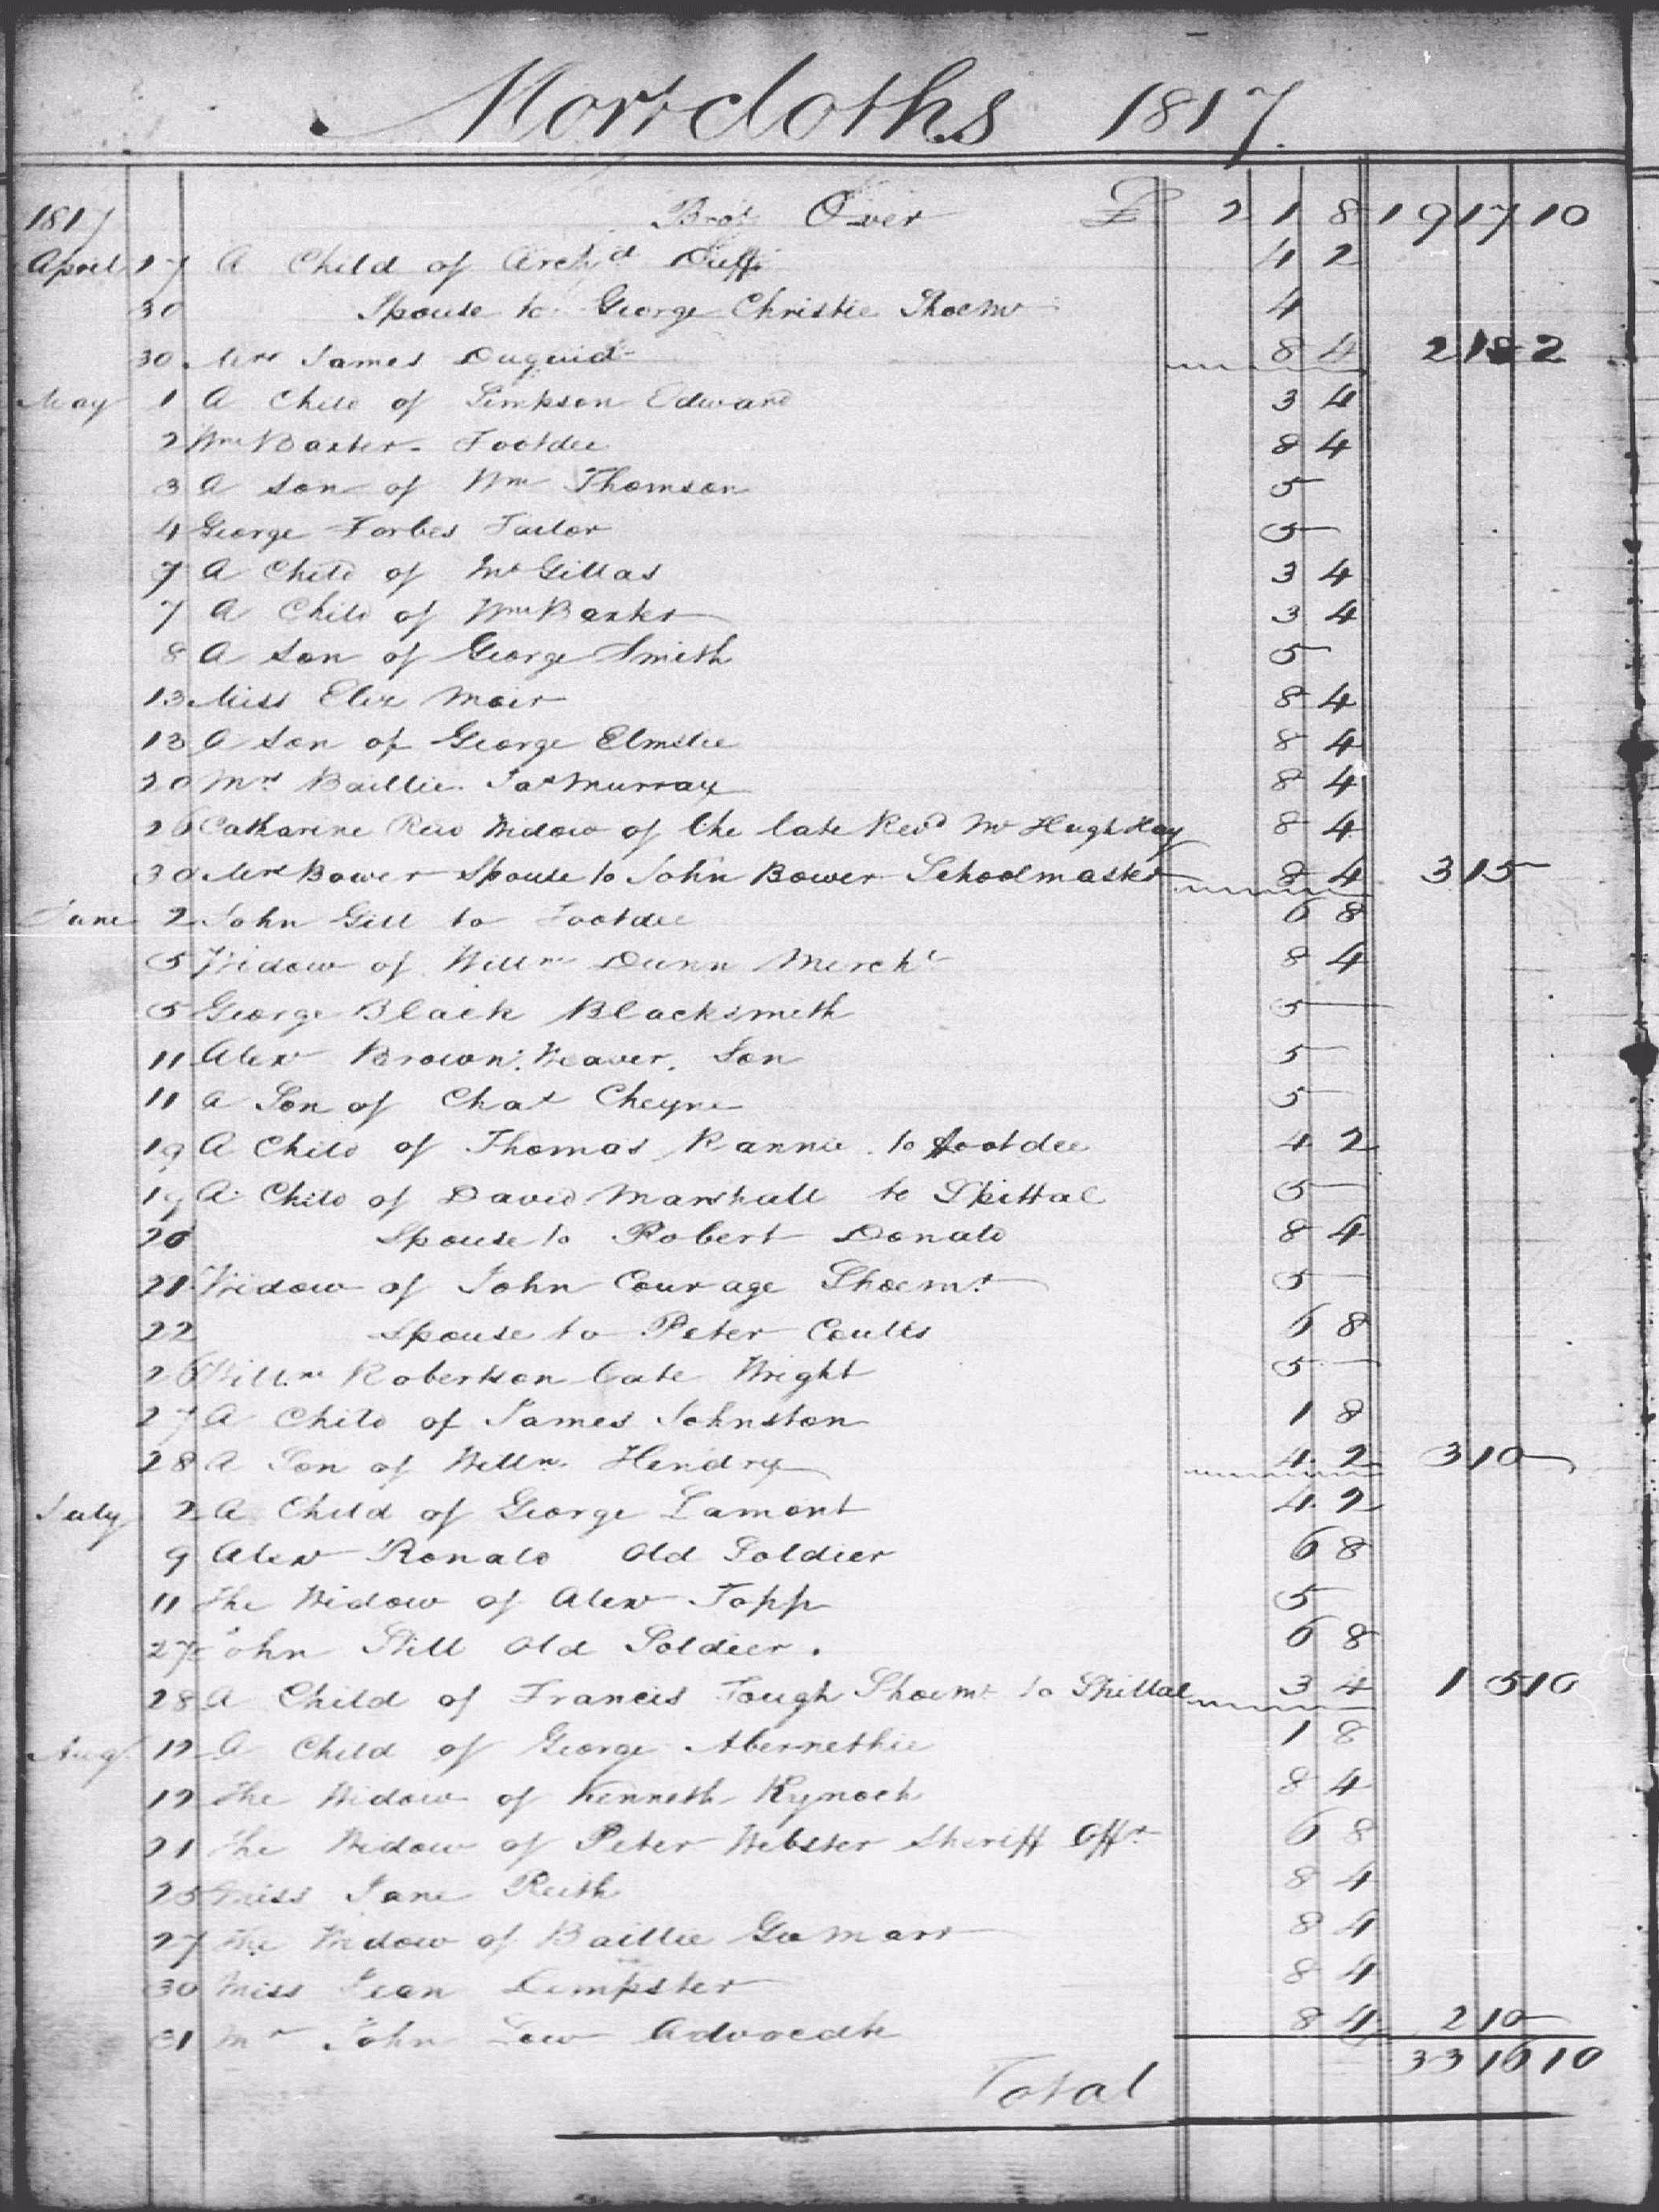 Mortcloths 1817.
1817 Brot Over £ 2 1 8 19 17 10
April 27 A Child of Archd Duff 4 2
30 Spouse to George Christie Shoemr 4
30 Mrs James Duguid 8 4 2 18 2
May 1 A Child of Simpson Edward 3 4
2 Wm Baxter Footdee 8 4
3 A Son of Wm Thomson 5
4 George Forbes Tailor 5
7 A Child of Mr Gillas 3 4
7 A Child of Wm Baxter 3 4
8 A Son of George Smith 5
13 Miss Eliz Moir 8 4
13 A Son of George Elmslie 8 4
20 Mrs Baillie Jas Murray 8 4
26 Catharine Reid Widow of the late Revd Mr Hugh Hay 8 4
30 Mrs Bower Spouse to John Bower Schoolmaster 8 4 3 15
June 2 John Gill to Footdee 6 8
5 Widow of Willm Dunn Mercht 8 4
5 George Black Blacksmith 5
11 Alexr Brown Weaver. Son 5
11 A Son of Chas Cheyne 5
19 A Child of Thomas Rannie to footdee 4 2
19 A Child of David Marshall to Spittal 5
20 Spouse to Robert Donald 8 4
21 Widow of John Courage Shoemr 5
22 Spouse to Peter Coutts 6 8
26 Willm Robertson late Wright 5
27 A Child of James Johnston 1 8
28 A Son of Willm Hendry 4 2 3 10
July 2 A Child of George Lamont 4 2
9 Alexr Ronald Old Soldier 6 8
11 The Widow of Alexr Topp 5
27 John Still Old Soldier. 6 8
28 A Child of Francis Tough Shoemr to Spittal 3 4 1 5 10
Augt 12 A Child of George Abernethie 1 8
12 The Widow of Kenneth Kynoch 8 4
21 The Widow of Peter Webster Sheriff Offr 6 8
25 Miss Jane Reith 8 4
27 The Widow of Baillie Geo Marr 8 4
30 Miss Jean Dempster 8 4
31 Mr John Low Advocate 8 4 2 10
Total 33 16 10